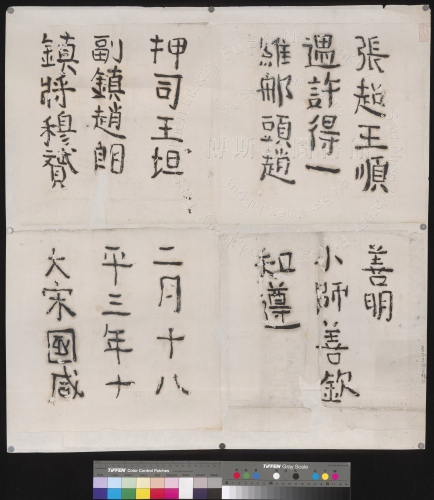 鎮將穆贇
副鎮趙朗
押司王坦
維那頭趙
遇許得一
張超王順
大宋國咸
平三年十
二月十八
知遵
小師善欽
善明
TIFFEN Color Control Patches
TIFFEN Gray Scale